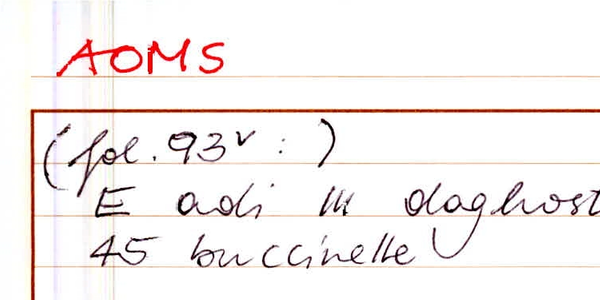 AOMS
(fol. 93v : )
E adi III daghost
45 buccinelle